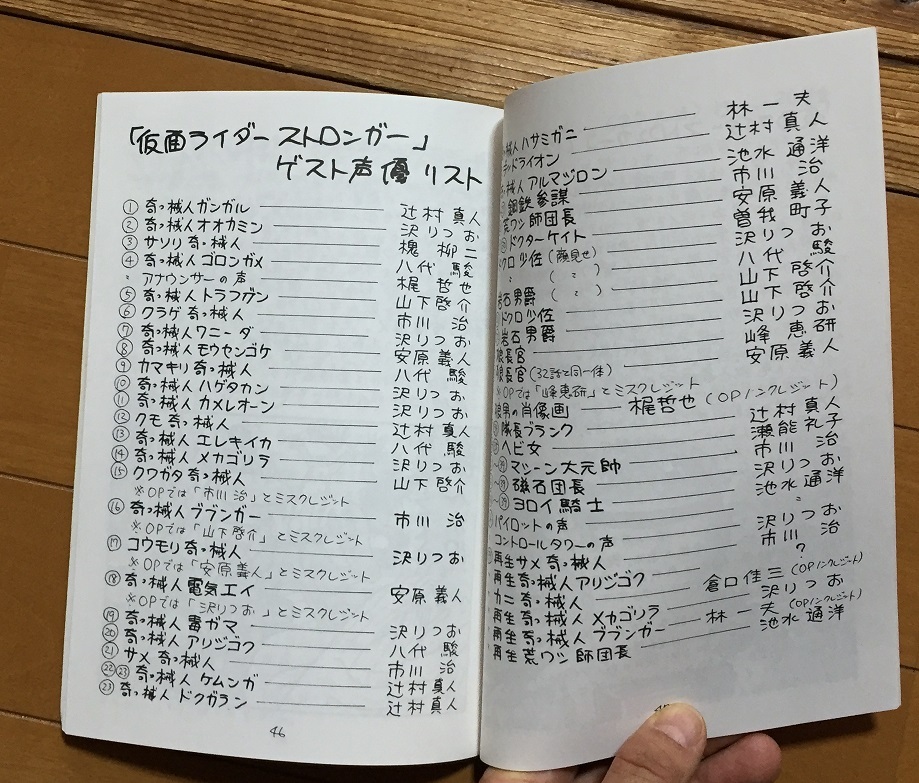 「仮面ライダーストロンガー」
ゲスト声優リスト
① 奇っ械人ガンガル 辻村真人
② 奇っ械人オオカミン 沢りつお
③ サソリ奇っ械人 槐柳二
④ 奇っ械人ゴロンガメ 八代駿
〃 アナウンサーの声 梶哲也
⑤ 奇っ械人トラフグン 山下啓介
⑥ クラゲ奇っ械人 市川治
⑦ 奇っ械人ワニーダ 沢りつお
⑧ 奇っ械人モウセンゴケ 安原義人
⑨ カマキリ奇っ械人 八代駿
⑩ 奇っ械人ハゲタカン 沢りつお
⑪ 奇っ械人カメレオーン 沢りつお
⑫ クモ奇っ械人 辻村真人
⑬ 奇っ械人エレキイカ 八代駿
⑭ 奇っ械人メカゴリラ 沢りつお
⑮ クワガタ奇っ械人 山下啓介
※OPでは「市川治」とミスクレジット
⑯ 奇っ械人ブブンガー 市川治
※OPでは「山下啓介」とミスクレジット
⑰ コウモリ奇っ械人 沢りつお
※OPでは「安原義人」とミスクレジット
⑱ 奇っ械人電気エイ 安原義人
※OPでは「沢りつお」とミスクレジット
⑲ 奇っ械人毒ガマ 沢りつお
⑳ 奇っ械人アリジゴク 八代駿
㉑ サメ奇っ械人 市川治
㉒㉓ 奇っ械人ケムンガ 辻村真人
㉓ 奇っ械人ドクガラン 辻村真人
46
械人ハサミガニ 林一夫
ッドライオン 辻村真人
械人アルマジロン 池水通洋
鋼鉄参謀 市川治
荒ワシ師団長 安原義人
ドクターケイト 曽我町子
クロ少佐(顔見せ) 沢りつお
(〃) 八代駿
岩石男爵(〃) 山下啓介
ドクロ少佐 山下啓介
岩石男爵 沢りつお
狼長官 峰恵研
狼長官(32話と同一体) 安原義人
※OPでは「峰恵研」とミスクレジット
狼男の肖像画 梶哲也(OPノンクレジット)
隊長ブランク 辻村真人
ヘビ女 瀬能礼子
マシーン大元帥 市川治
磁石団長 沢りつお
ヨロイ騎士 池水通洋
パイロットの声 〃
コントロールタワーの声 沢りつお
再生サメ奇っ械人 市川治
再生奇っ械人アリジゴク ?
カニ奇っ械人 倉口佳三(OPノンクレジット)
再生奇っ械人メカゴリラ 沢りつお
再生奇っ械人ブブンガー 林一夫(OPノンクレジット)
再生荒ワシ師団長 池水通洋